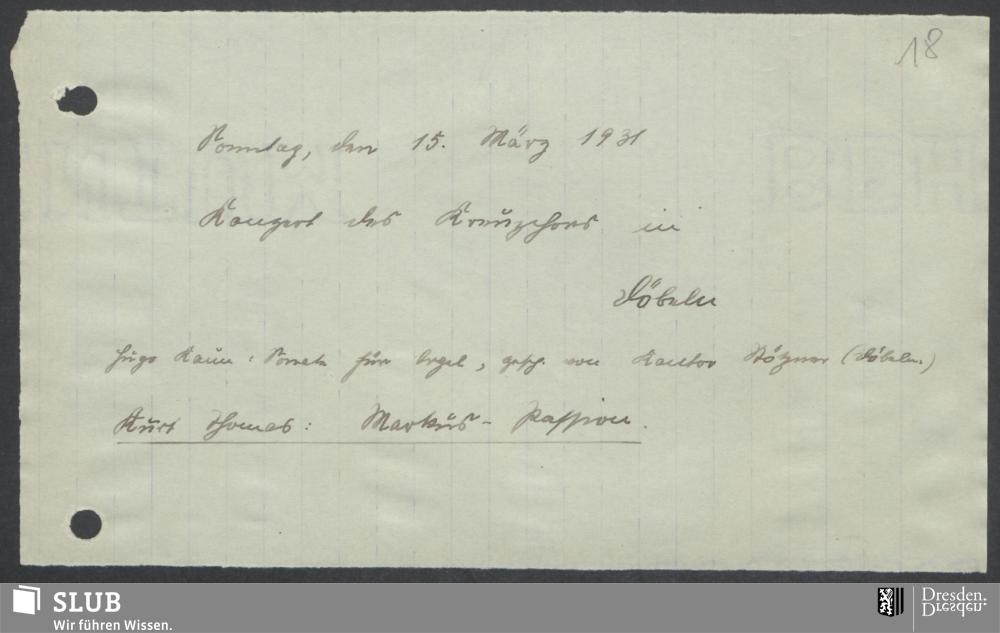 18
Sonntag, den 15. März 1931
Konzert des Kreuzchors in
Döbeln
Hugo Kaun: Sonate für Orgel, gesp. von Kantor Stötzner (Döbeln.)
Kurt Thomas: Markus-Passion.
SLUB
Wir führen Wissen.
Dresden.
Dresden.